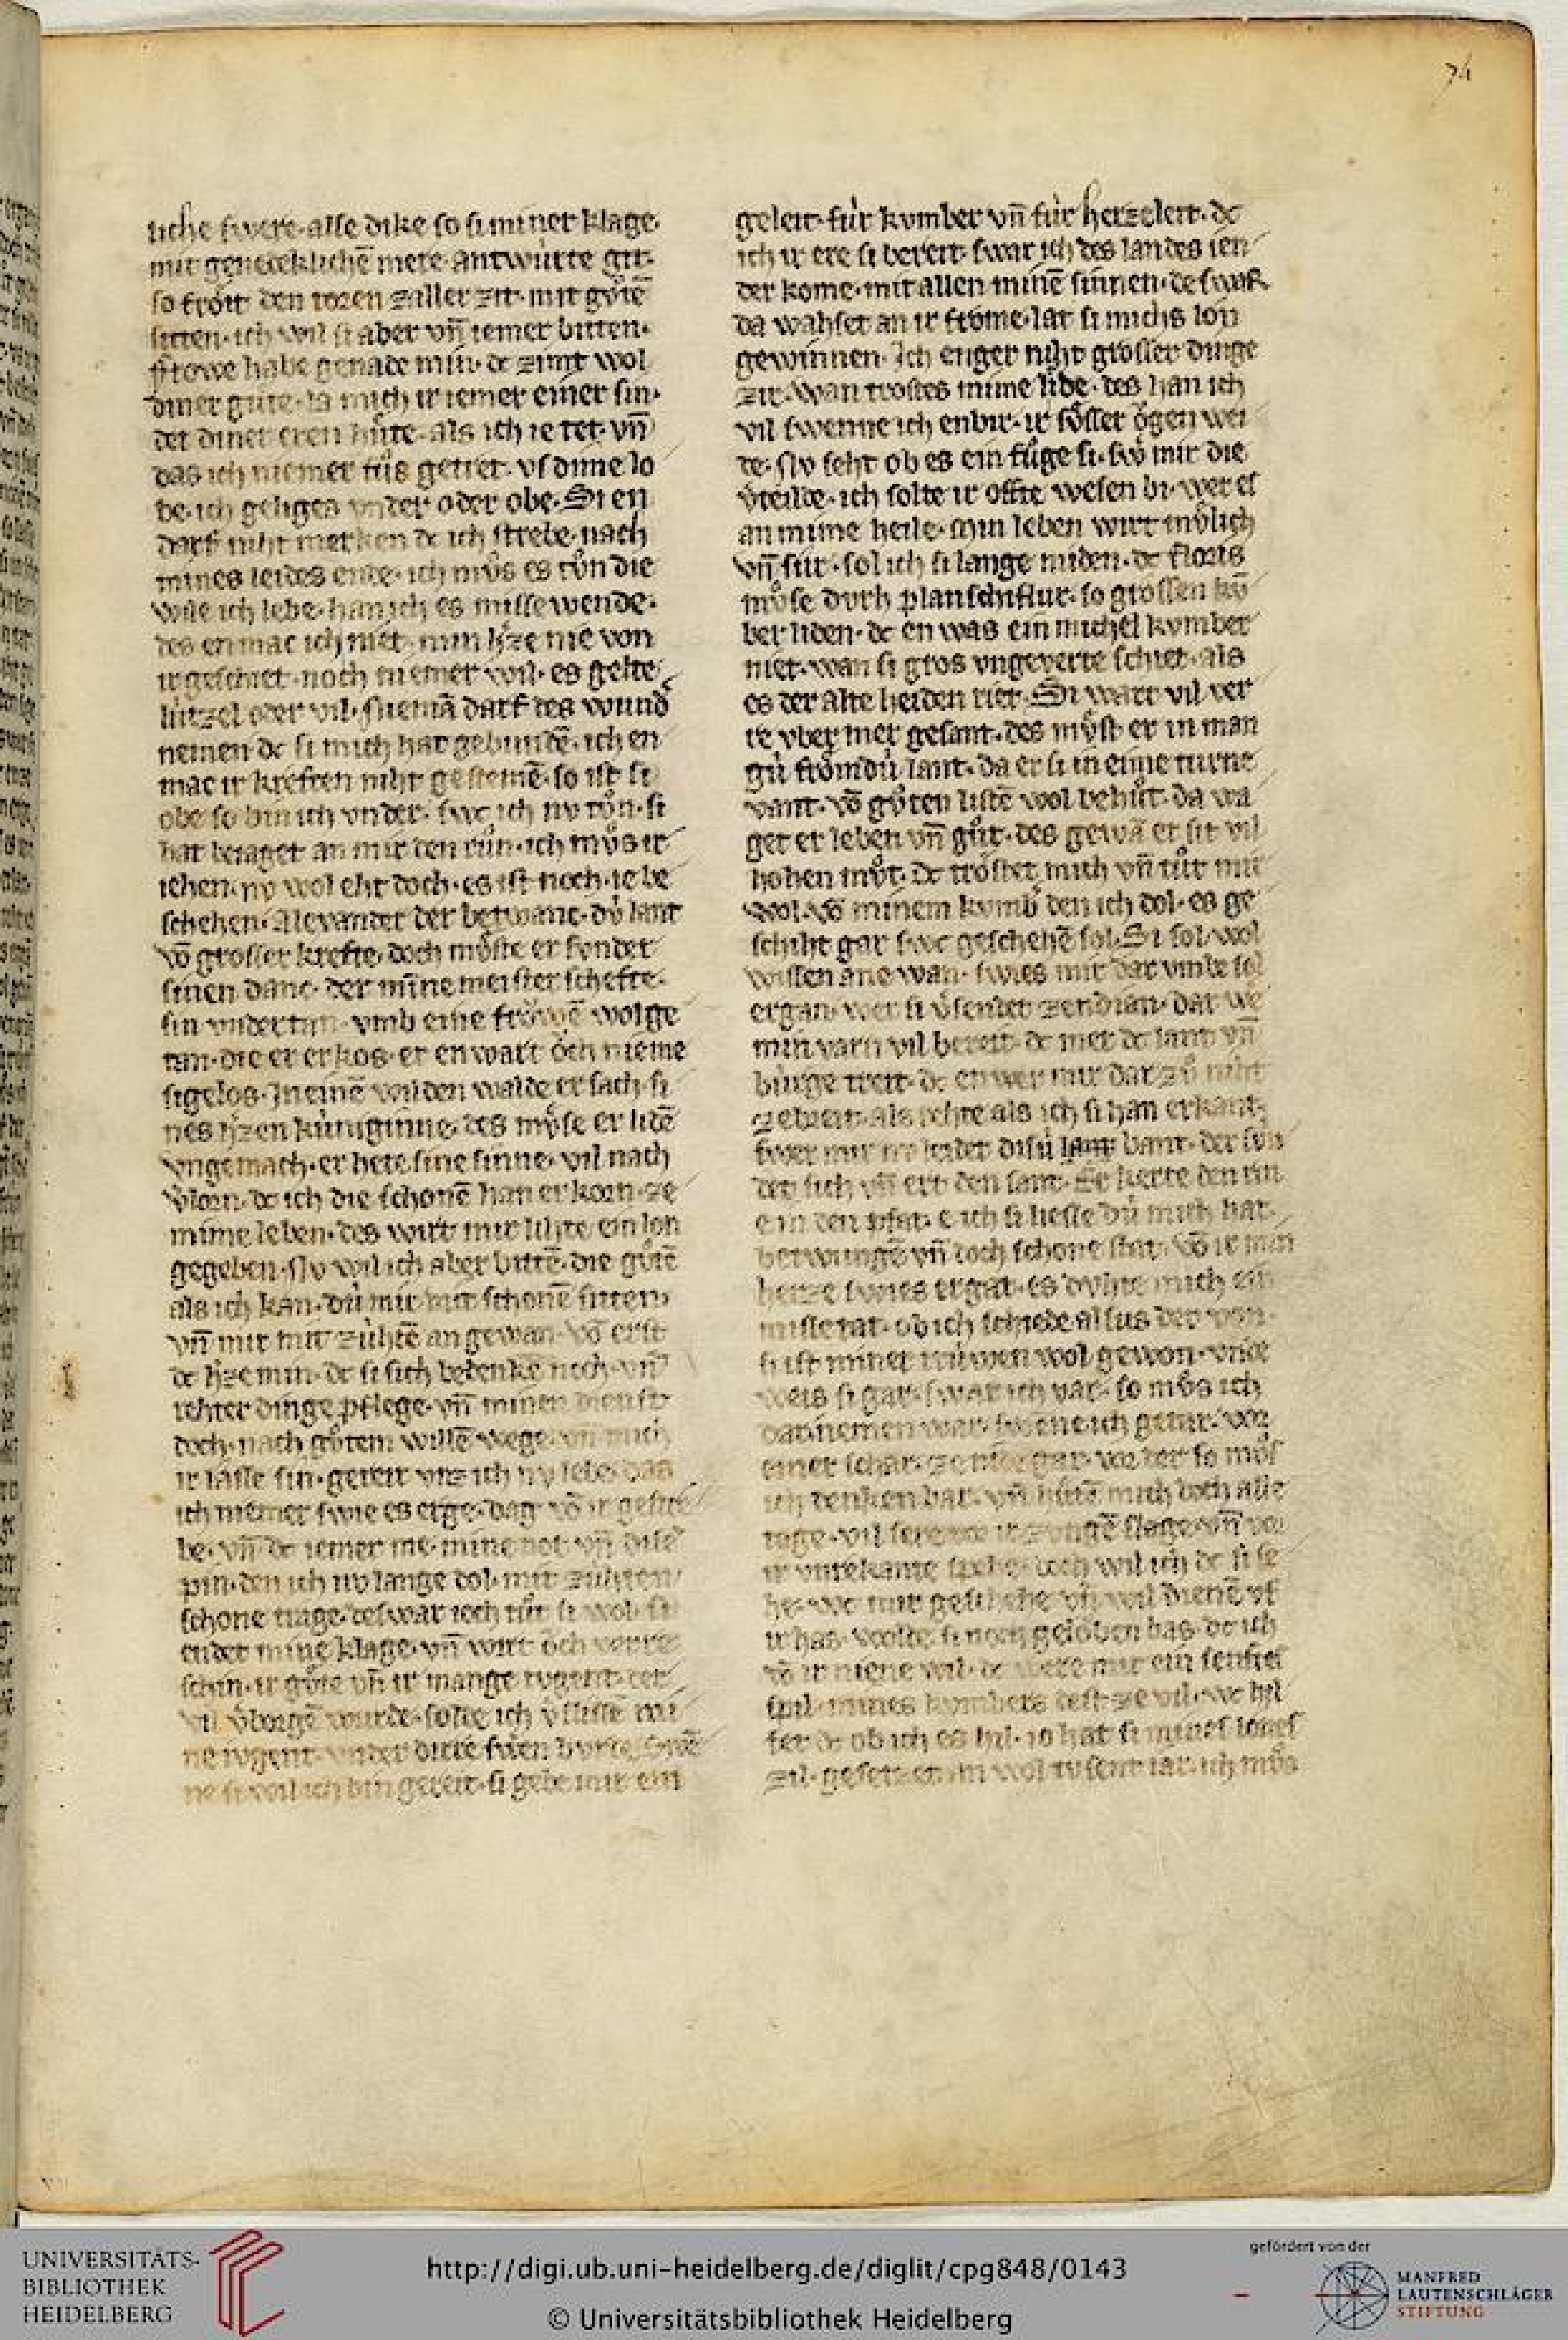 74
liche swere. alse dike so si miner klage.
mit genedeklichē mere antwúrte git.
so fröit den toren zaller zit. mit gůtē
sitten. ich wil si aber vn̄ iemer bitten.
frowe habe genade min. dc zimt wol
diner gúte. la mich ir iemer einer sin.
der diner eren hůte. als ich ie tet. vn̄
das ich niemer fůs getret. vf dime lo
be. ich geliges vnder oder obe. Si en
darf niht merken dc ich strebe. nach
mines leides ende. ich můs es tůn die
wile ich lebe. han ich es missewende.
des en mac ich niet. min h'ze nie von
ir geschiet. noch niemer wil. es gelte
lútzel oder vil. Niemā darf des wund'
nemen dc si mich hat gebundē. ich en
mac ir kreften niht gestemē. so ist si
obe so bin ich vnder. swc ich nv tůn. si
hat betaget an mir den růn. ich můs ir
iehen. nv wol eht doch. es ist noch. ie be
schehen. Alexander der betwanc. dú lant
vō grosser krefte. doch můste er sunder
sinen danc. der minne meisterschefte.
sin vndertan. vmb eine fröwē wolge
tan. die er erkos. er en wart öch nieme
sigelos. In einē wilden walde er sach. si
nes h'zen kúniginne. des můse er lidē
vngemach. er hete sine sinne. vil nach
v'lorn. dc ich die schonē han erkorn. ze
mime leben. des wirt mir lihte ein lon
gegeben. Nv wil ich aber bittē. die gůtē
als ich kan. dú mir mit schonē sitten
vn̄ mit mit zúhtē an gewan. vō erst
dc h'ze min. dc si sich bedenke noch. vn̄
rehter dinge pflege. vn̄ minen dienst
doch. nach gůtem willē wege. vn̄ mich
ir lasse sin. gereit vnz ich nv lebe. das
ich niemer swie es erge. dag vō ir gestre
be. vn̄ dc iemer me. mine not vn̄ dise
pin. den ich nv lange dol. mit zuhten
schone trage. deswar ioch tůt si wol. si
endet mine klage. vn̄ wirt öch verre
schin. ir gůte vn̄ ir mange tugent. der
vil v'borgē wurde. solde ich v'slissē mi
ne iugent. vnder dirre swēn burde. Swē
ne si wil ich bin gereit. si gebe mir ein
geleit. fúr kvmber vn̄ fúr herzeleit. dc
ich ir ere si bereit. swar ich des landes ien
der kome. mit allen minē sinnen. deswar
da wahset an ir frome. lat si michs lon
gewinnen. Ich enger niht grosser dinge
zir. wan trostes mime libe. des han ich
vil swenne ich enbir. ir sösser ögen wei
de. Nv seht ob es ein fůge si. swo mir die
v'teilde. ich solte ir ofte wesen bi. wer es
an mime heile. Min leben wirt mv̊lich
vn̄ sur. sol ich si lange miden. dc floris
můse dvrh planschiflur. so grossen kv̄
ber liden. dc en was ein michel kvmber
niet. wan si gros vngeverte schiet. als
es der alte heiden riet. Si wart vil ver
re vber mer gesant. des můst er in man
gú frömdú lant. da er si in eime turne
vant. vō gůten listē wol behůt. da wa
get er leben vn̄ gůt. des gewā er sit vil
hohen můt. Dc tröstet mich vn̄ tůt mir
wol. vō minem kvmb' den ich dol. es ge
schiht gar swc geschehē sol. Si sol wol
wissen ane wan. swies mir dar vmbe sol
ergan. wer si v'sendet zendian. dar we
min varn vil bereit. dc mer dc lant vn̄
búrge treit. dc enwer mir dar zů niht
ze breit. als rehte als ich si han erkant.
swer mir nv leidet disú lant bant. der sún
det sich vn̄ ert den sant. Er kerte den rin
e in den pfat. e ich si liesse dú mich hat.
betwungē vn̄ doch schone stat. vō ir min
herze swies ergat. es dvhte mich ein
missetat. ob ich schiede alsus der von.
si ist miner niuwen wol gewon. vnde
weis si gar. swar ich var. so můs ich
dar nemen war. swene ich getar. vor
einer schar. ze nide gar. vor der so můs
ich denken dar. vn̄ hůtē mich doch alle
tage. vil sere vor ir zungē slage. vn̄ vor
ir vnrekante spehe. doch wil ich dc si se
he. wc mir geschehe vn̄ wil dienē vf
ir has. wolte si noch geloben bas. dc ich
vō ir niene wil. dc were mir ein senftes
spil. mines kvmbers dest ze vil. wc hil
fet dc ob ich es hil. io hat si mines lones
zil. gesetzet in wol tvsent iar. ich můs
UNIVERSITÄTS-
BIBLIOTHEK
HEIDELBERG
http://digi.ub.uni-heidelberg.de/diglit/cpg848/0143
© Universitätsbibliothek Heidelberg
gefördert von der
MANFRED
LAUTENSCHLÄGER
STIFTUNG